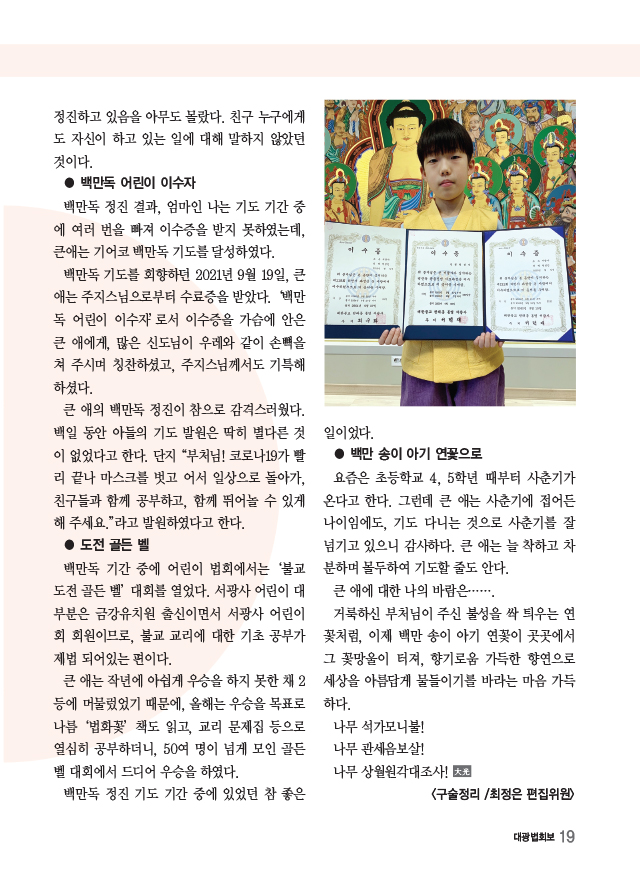 정진하고 있음을 아무도 몰랐다. 친구 누구에게
도 자신이 하고 있는 일에 대해 말하지 않았던
것이다.
● 백만독 어린이 이수자
백만독 정진 결과, 엄마인 나는 기도 기간 중
에 여러 번을 빠져 이수증을 받지 못하였는데,
큰애는 기어코 백만독 기도를 달성하였다.
백만독 기도를 회향하던 2021년 9월 19일, 큰
애는 주지스님으로부터 수료증을 받았다. ‘백만
독 어린이 이수자’로서 이수증을 가슴에 안은
큰 애에게, 많은 신도님이 우레와 같이 손뼉을
쳐 주시며 칭찬하셨고, 주지스님께서도 기특해
하셨다.
큰 애의 백만독 정진이 참으로 감격스러웠다.
백일 동안 아들의 기도 발원은 딱히 별다른 것
이 없었다고 한다. 단지 “부처님! 코로나19가 빨
리 끝나 마스크를 벗고 어서 일상으로 돌아가,
친구들과 함께 공부하고, 함께 뛰어놀 수 있게
해 주세요.”라고 발원하였다고 한다.
● 도전 골든 벨
백만독 기간 중에 어린이 법회에서는 ‘불교
도전 골든 벨’ 대회를 열었다. 서광사 어린이 대
부분은 금강유치원 출신이면서 서광사 어린이
회 회원이므로, 불교 교리에 대한 기초 공부가
제법 되어있는 편이다.
큰 애는 작년에 아쉽게 우승을 하지 못한 채 2
등에 머물렀었기 때문에, 올해는 우승을 목표로
나름 ‘법화꽃’ 책도 읽고, 교리 문제집 등으로
열심히 공부하더니, 50여 명이 넘게 모인 골든
벨 대회에서 드디어 우승을 하였다.
백만독 정진 기도 기간 중에 있었던 참 좋은
이 수 증
이 수 증
이 수 증
일이었다.
● 백만 송이 아기 연꽃으로
요즘은 초등학교 4, 5학년 때부터 사춘기가
온다고 한다. 그런데 큰 애는 사춘기에 접어든
나이임에도, 기도 다니는 것으로 사춘기를 잘
넘기고 있으니 감사하다. 큰 애는 늘 착하고 차
분하며 몰두하여 기도할 줄도 안다.
큰 애에 대한 나의 바람은…….
거룩하신 부처님이 주신 불성을 싹 틔우는 연
꽃처럼, 이제 백만 송이 아기 연꽃이 곳곳에서
그 꽃망울이 터져, 향기로움 가득한 향연으로
세상을 아름답게 물들이기를 바라는 마음 가득
하다.
나무 석가모니불!
나무 관세음보살!
나무 상월원각대조사! 大光
〈구술정리 /최정은 편집위원〉
대광법회보 19